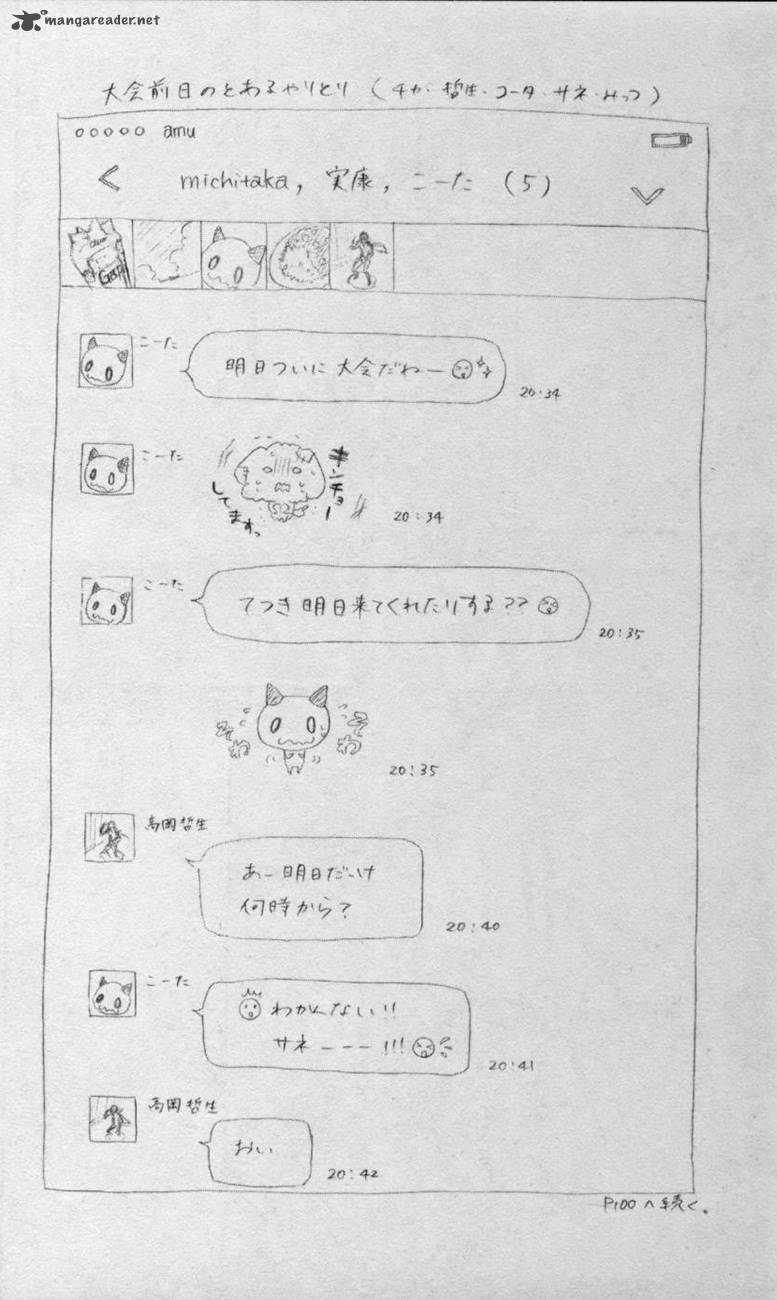 mangareader.net
大会前日のとあるやりとり (チカ・哲生・コータ・サネ・みっつ)
ooooo amu
< michitaka, 実康, こーた (5)
こーた
明日ついに大会だねー
20:34
こーた
キンチョー
してますっ
20:34
こーた
てつき明日来てくれたりする??
20:35
そわ
そわ
20:35
高岡哲生
あー明日だっけ
何時から?
20:40
こーた
わかんない!!
サネーーー!!!
20:41
高岡哲生
おい
20:42
P100へ続く。